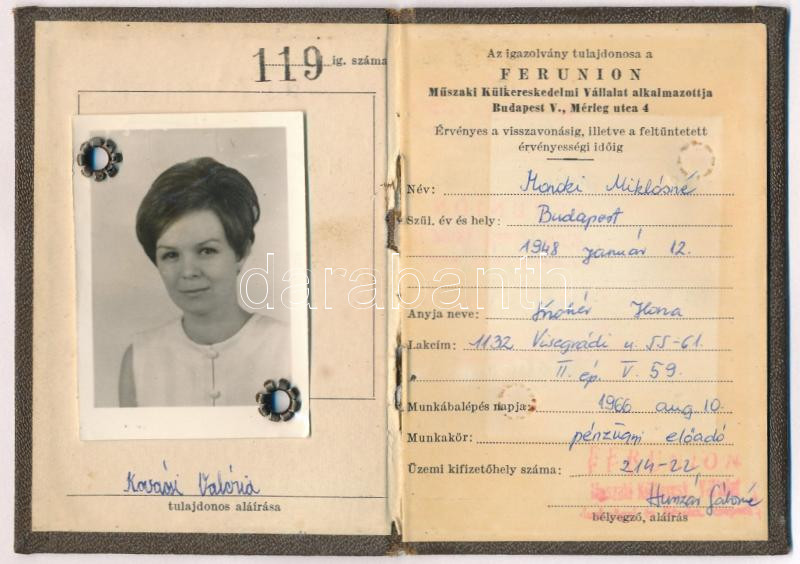 119 ig. száma
tulajdonos aláírása
Az igazolvány tulajdonosa a
FERUNION
Műszaki Külkereskedelmi Vállalat alkalmazottja
Budapest V., Mérleg utca 4
Érvényes a visszavonásig, illetve a feltüntetett
érvényességi időig
Név: Miklósné
Szül. év és hely: Budapest
1948 január 12.
Anyja neve: Ilona
Lakcím: 1132 Visegrádi u. 55-61.
II. ép. V. 59.
Munkábalépés napja: 1966 aug 10.
Munkakör: pénzügyi előadó
Üzemi kifizetőhely száma: 214-22
FERUNION
bélyegző, aláírás
darabanth